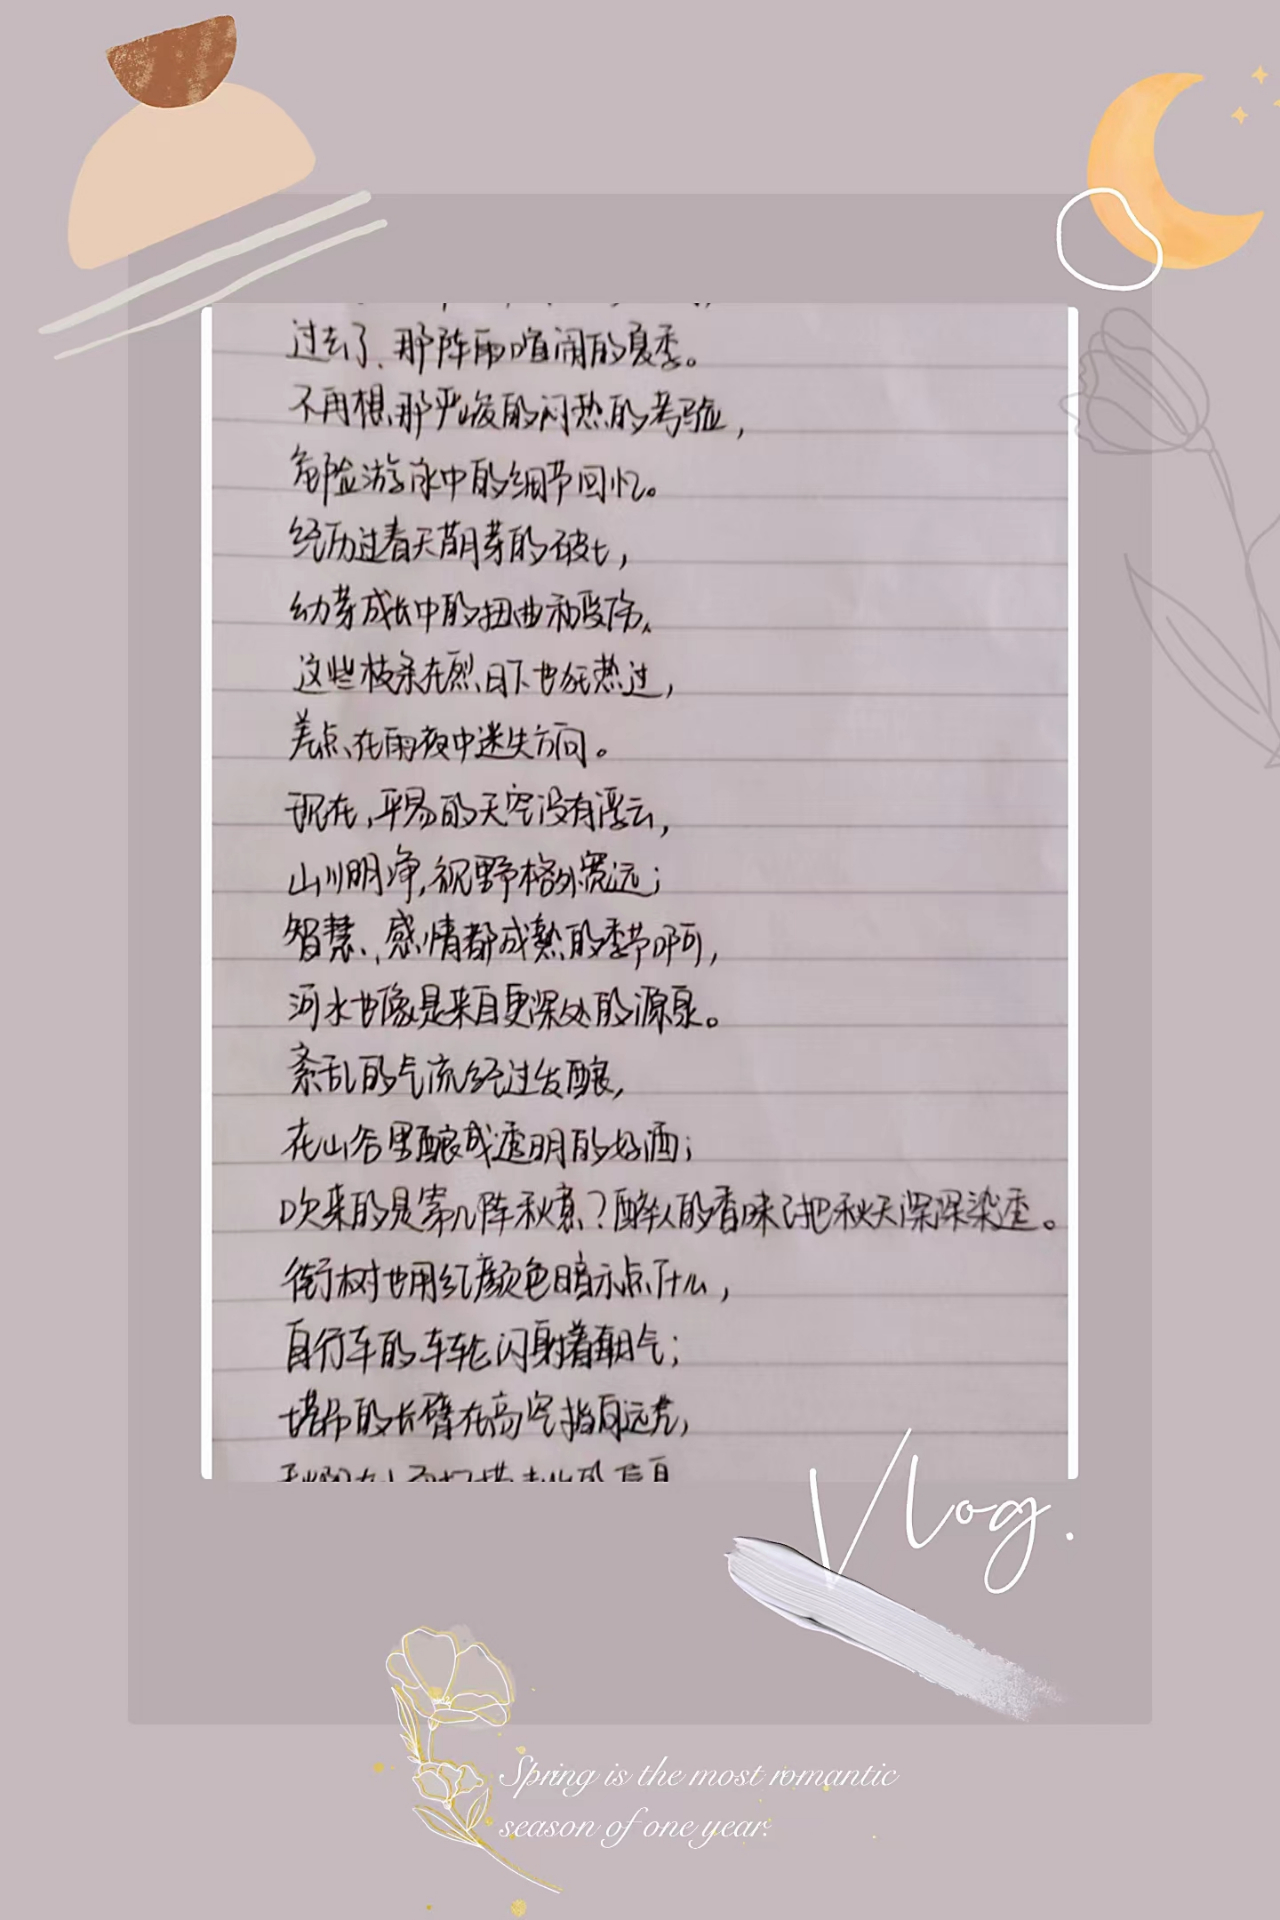 过去了,那阵雨喧闹的夏季。
不再想那严峻的闷热的考验,
危险游泳中的细节回忆。
经历过春天萌芽的破土,
幼芽成长中的扭曲和受伤,
这些枝条在烈日下也狂热过,
差点在雨夜中迷失方向。
现在,平易的天空没有浮云,
山川明净,视野格外宽远;
智慧、感情都成熟的季节啊,
河水也像是来自更深处的源泉。
紊乱的气流经过发酵,
在山谷里酿成透明的好酒;
吹来的是第几阵秋意?醉人的香味已把秋天深深染透。
街树也用红颜色暗示点什么,
自行车的车轮闪射着朝气;
塔吊的长臂在高空指向远方,
Vlog.
Spring is the most romantic
season of one year.